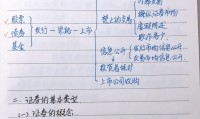 股票
债券
基金
发行—买卖—上市
禁止的交易
操纵证券市场
虚假陈述
欺诈客户
信息公开
发行时的信息公开
投资者保护
上市公司收购
二、证券的基本类型
(一)证券的概念